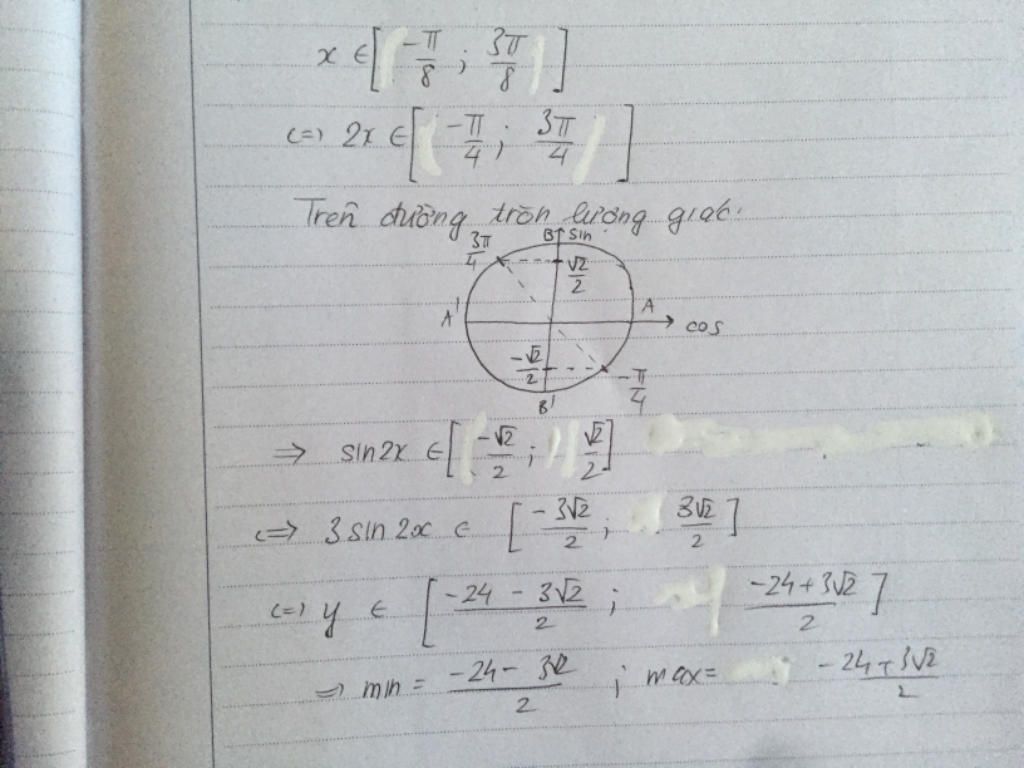 x ∈ [ -π/8 ; 3π/8 ]
(=) 2x ∈ [ -π/4 ; 3π/4 ]
Trên đường tròn lượng giác:
B sin
3π/4
√2/2
A' A cos
-√2/2
-π/4
B'
⇒ sin2x ∈ [ -√2/2 ; √2/2 ]
(=) 3 sin 2x ∈ [ -3√2/2 ; 3√2/2 ]
(=) y ∈ [ -24 - 3√2/2 ; -24 + 3√2/2 ]
⇒ min = -24 - 3√2/2 ; max = -24 + 3√2/2